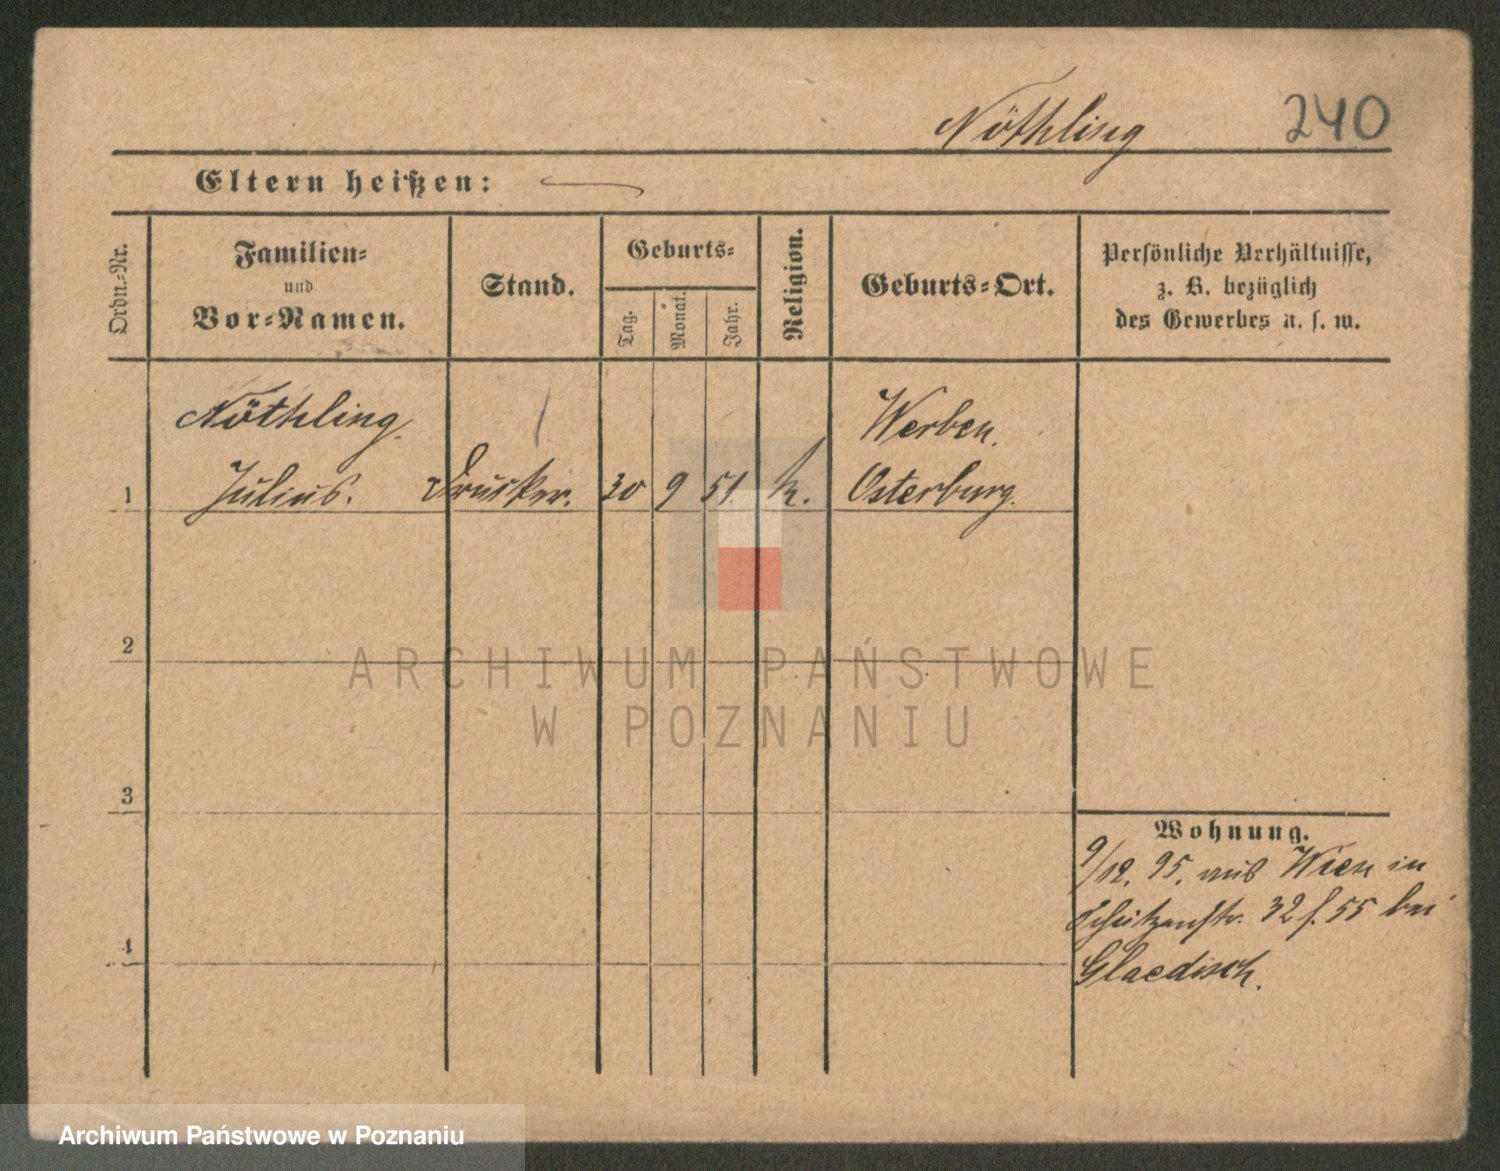 Nöthling 240
Eltern heißen:
Ordn.-Nr.
Familien-
und
Vor-Namen.
Stand.
Geburts-
Tag.
Monat.
Jahr.
Religion.
Geburts-Ort.
Persönliche Verhältnisse,
z. B. bezüglich
des Gewerbes u. s. w.
Nöthling. Werben.
1 Julius. Drucker. 30 9 51 k. Osterburg.
2
3
4
Wohnung.
9/12. 95. aus Wien in
Schützenstr. 32 f. 55 bei
Glaedisch.
ARCHIWUM PAŃSTWOWE
W POZNANIU
Archiwum Państwowe w Poznaniu